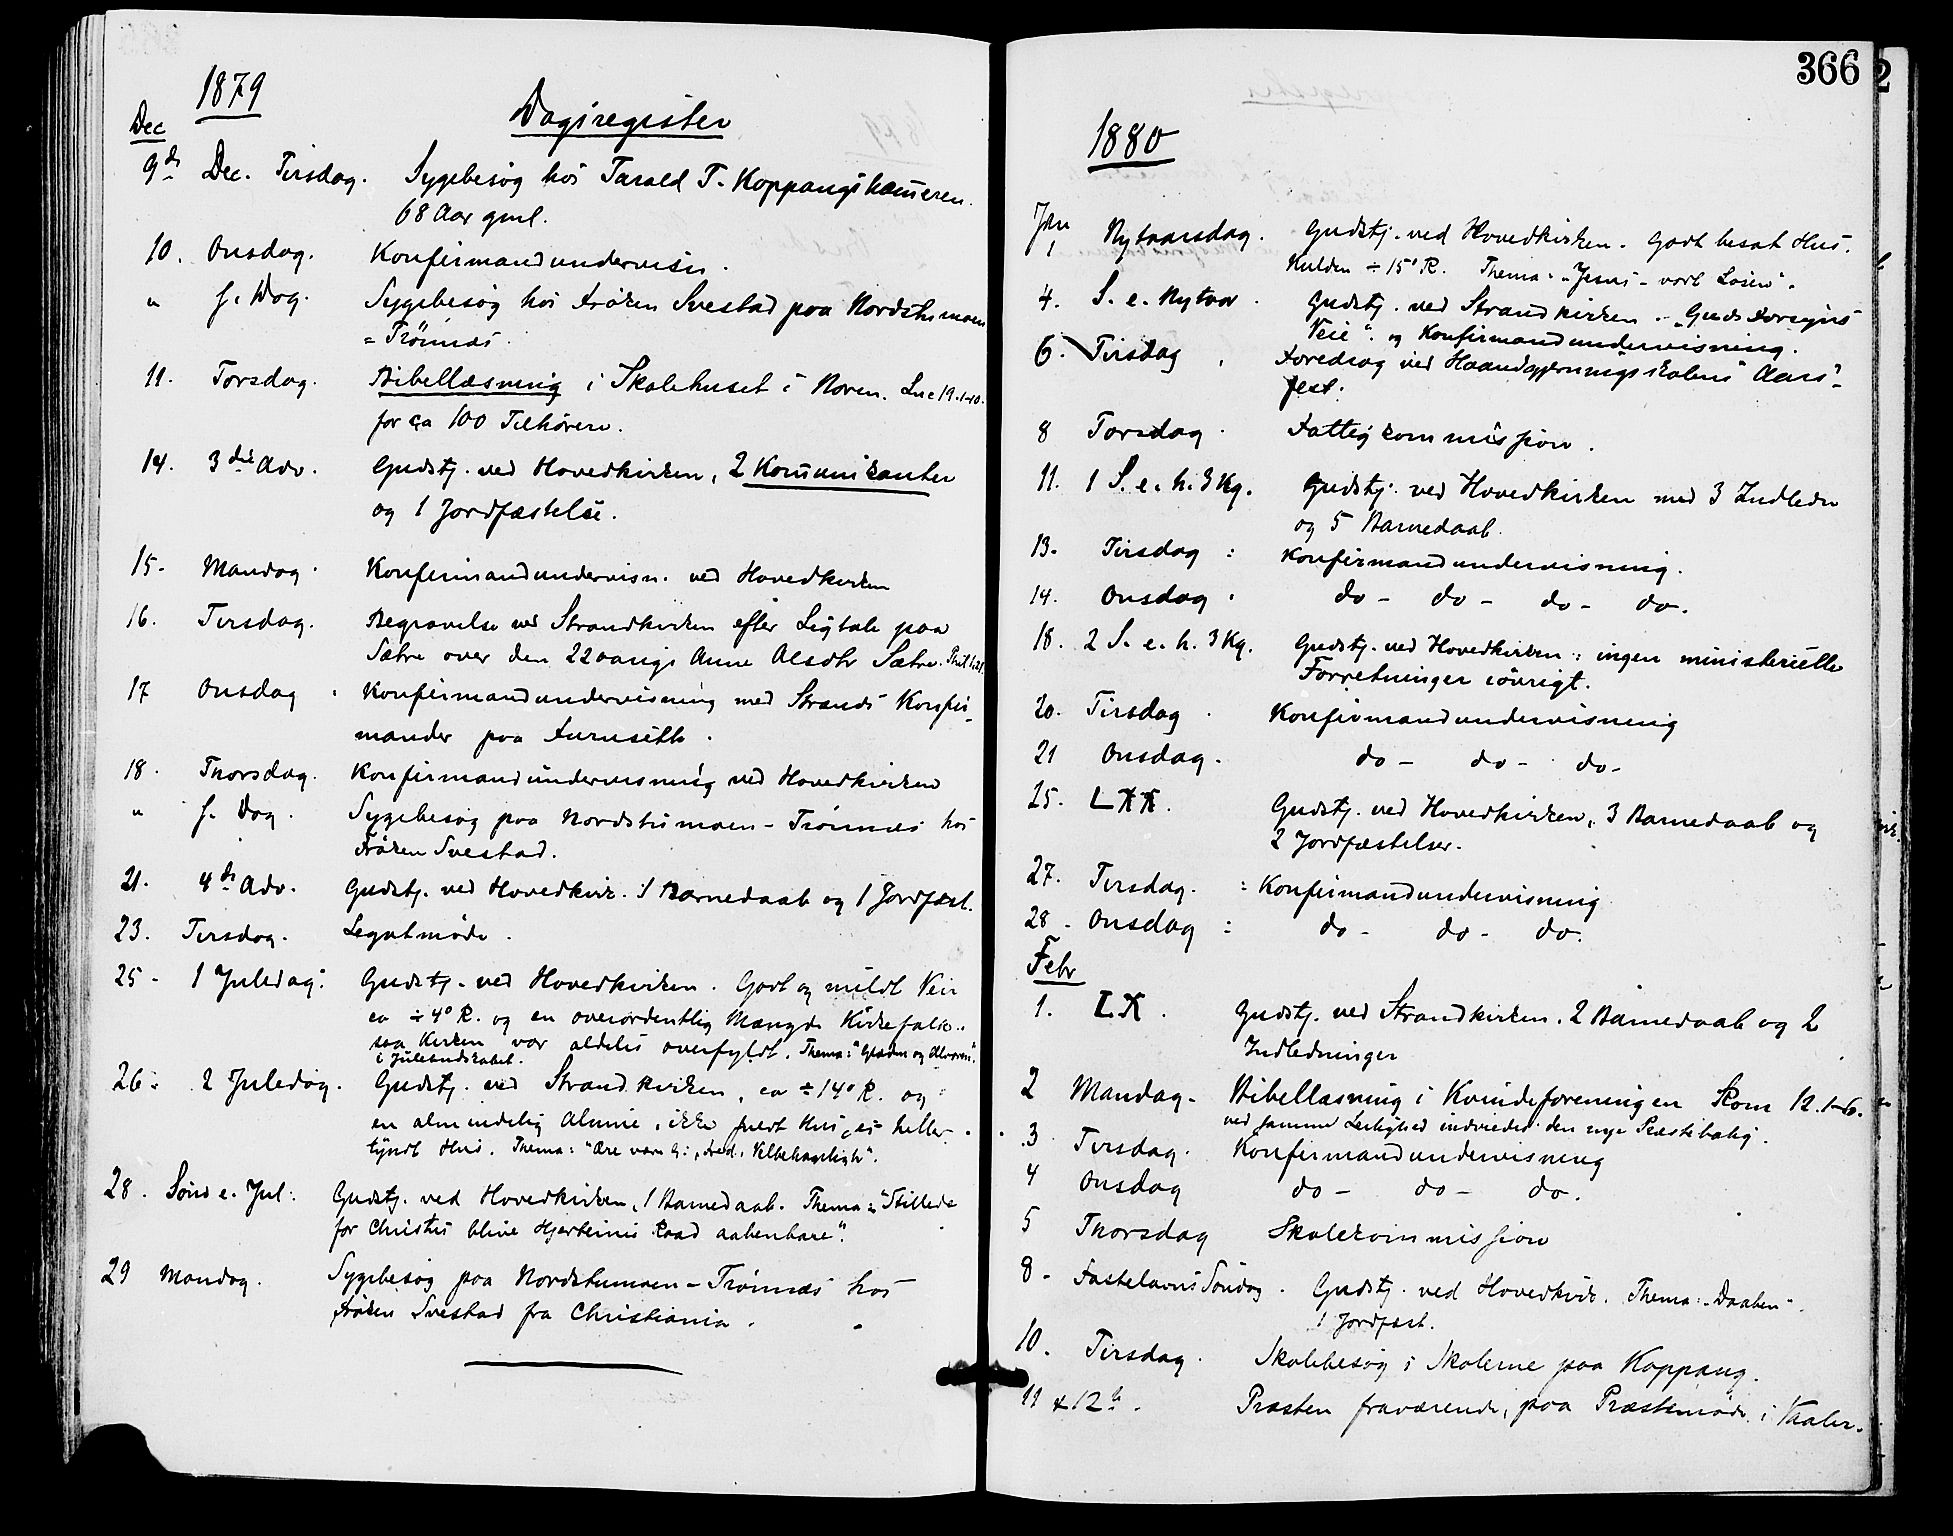 1879
Dagsregister
Dec
9de Dec. Tirsdag. Sygebesøg hos Tarald T. Koppangskammeren.
68 Aar gml.
10. Onsdag. Konfirmandundervisn.
" s. Dag. Sygebesøg hos Frøken Svestad paa Nordstumoen
= Trønnæs.
11. Torsdag. Bibellæsning i Skolehuset i Noren. Luc 19.1-10.
for ca 100 Tilhørere.
14. 3die Adv. Gudstj. ved Hovedkirken, 2 Komunikanter
og 1 Jordfæstelse.
15. Mandag. Konfirmandundervisn. ved Hovedkirken
16. Tirsdag. Begravelse ved Strandkirken efter Ligtale paa
Sætre over den 22aarige Anne Alsdtr Sætre.
17 Onsdag. Konfirmandundervisning med Strands Konfir-
mander paa Furuseth.
18. Thorsdag. Konfirmandundervisning ved Hovedkirken
" s. Dag. Sygebesøg paa Nordstumoen - Trønnæs hos
Frøken Svestad.
21. 4de Adv. Gudstj. ved Hovedkir. 1 Barnedaab og 1 Jordfæst.
23. Tirsdag. Legatmøde.
25- 1 Juledag: Gudstj. ved Hovedkirken. Godt og mildt Veir
ca ÷ 4° R. og en overordentlig Mængde Kirkefolk..
saa Kirken var aldeles overfyldt. Thema: "Glæden og Alvoren"
i Julebudskabet.
26. 2 Juledag. Gudstj. ved Strandkirken, ca ÷ 14° R. og
en almindelig Almue, ikke fuldt Hus, ei heller
tyndt Hus. Thema: "Ære være G:, Fred, Velbehagelighed".
28. Sønd e. Jul: Gudstj. ved Hovedkirken, 1 Barnedaab. Thema: "Stillede
for Christus blive Hjerternes Raad aabenbare".
29 Mandag. Sygebesøg paa Nordstumoen - Trønnæs hos
Frøken Svestad fra Christiania.
366
1880
Jan
1 Nytaarsdag. Gudstj. ved Hovedkirken. Godt besat Hus.
Kulden ÷ 15° R. Thema: "Jesus - vort Løsen".
4. S. e. Nytaar. Gudstj. ved Strandkirken. "Guds Forsyns
Veie". og Konfirmandundervisning.
6. Tirsdag, Foredrag ved Haandgjerningsskolens Aars-
fest.
8 Torsdag. Fattigkommission.
11. 1 S. e. h. 3 Kg. Gudstj. ved Hovedkirken med 3 Indledn
og 5 Barnedaab.
13. Tirsdag : Konfirmandundervisning.
14. Onsdag. do - do - do - do.
18. 2 S. e. h. 3 Kg. Gudstj. ved Hovedkirken; ingen ministerielle
Forretninger iøvrigt.
20. Tirsdag. Konfirmandundervisning
21 Onsdag. do - do - do -
25. LXX. Gudstj. ved Hovedkirken, 3 Barnedaab og
2 Jordfæstelser.
27. Tirsdag. : Konfirmandundervisning
28. Onsdag : do - do - do.
Febr
1. LX. Gudstj. ved Strandkirken. 2 Barnedaab og 2
Indledninger
2 Mandag. Bibellæsning i Kvindeforeningen Rom 12.1-6.
ved samme Leilighed indviedes den nye Præstebolig.
3 Tirsdag. Konfirmandundervisning
4 Onsdag do - do - do.
5 Thorsdag Skolekommission
8. Fastelavns Søndag. Gudstj. ved Hovedkirk. Thema: "Daaben".
1 Jordfæst.
10. Tirsdag. Skolebesøg i Skolerne paa Koppang.
11 & 12te. Præsten fraværende, paa Præstemøde i Vaaler.